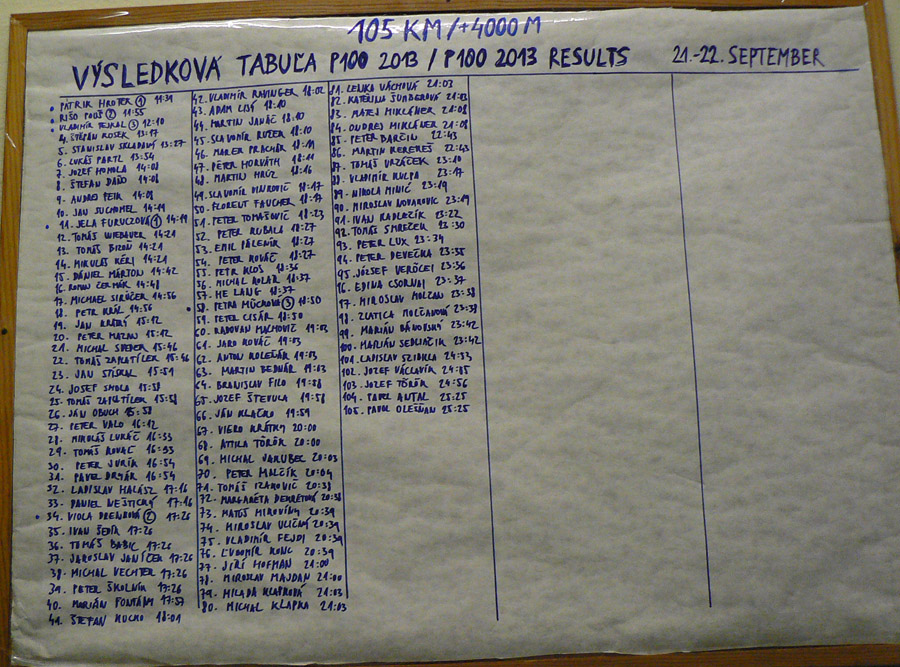 105 KM/+4000M
VÝSLEDKOVÁ TABUĽA P100 2013 / P100 2013 RESULTS 21.-22. SEPTEMBER
PATRIK HROTEK 1 11:31
RIŠO POUŠ 2 11:55
VLADIMÍR 3 12:10
4. ŠTEPÁN KOSEK 13:17
5. STANISLAV SKLADANÝ 13:27
6. LUKÁŠ PARTL 13:54
7. JOZEF HOMOLA 14:08
8. ŠTEFAN DAŇO 14:08
9. ANDREJ PETR 14:08
10. JAN SUCHOMEL 14:19
11. JELA FURUCZOVÁ 1 14:19
12. TOMÁŠ WIEBAUER 14:21
13. TOMÁŠ BIZOŇ 14:21
14. MIKULÁŠ KÉRI 14:21
15. DÁNIEL MÁRTON 14:42
16. ROMAN ČERMÁK 14:48
17. MICHAEL SIRŮČEK 14:56
18. PETR KRÁL 14:56
19. JÁN KRATKÝ 15:12
20. PETER MAZAN 15:12
21. MICHAL 15:46
22. TOMÁŠ ZAPLETÍLEK 15:46
23. JAN STÍSKAL 15:51
24. JOSEF SMOLA 15:58
25. TOMÁŠ ZAPLETÍLEK 15:58
26. JÁN OBUCH 15:58
27. PETER VALO 16:12
28. MIKULÁŠ LUKÁČ 16:33
29. TOMÁŠ KOVAČ 16:53
30. PETER JURÍK 16:54
31. PAVEL DRMÁR 16:54
32. LADISLAV HALÁSZ 17:16
33. DANIEL NEŠTICKÝ 17:16
34. VIOLA 2 17:26
35. IVAN ŠEDÍK 17:26
36. TOMÁŠ BABIC 17:26
37. JAROSLAV JANÍČEK 17:26
38. MICHAL VECHTER 17:26
39. PETER ŠKOLNÍK 17:26
40. MARIÁN FONTÁNY 17:57
41. ŠTEFAN KUCKO 18:01
42. VLADIMÍR RAVINGER 18:02
43. ADAM LISÝ 18:10
44. MARTIN JANÁČ 18:10
45. SLAVOMÍR RUŽEK 18:10
46. MAREK PRACHÁR 18:11
47. PETER HORVÁTH 18:11
48. MARTIN HRÚZ 18:16
49. SLAVOMÍR VINKOVIČ 18:17
50. FLOREUT FAUCHER 18:17
51. PETER TOMAŠOVIC 18:23
52. PETER KUBALA 18:27
53. EMIL PÁLENÍK 18:27
54. PETER KOVÁČ 18:27
55. PETR KLOS 18:36
56. MICHAL KOLAR 18:37
57. HE LANG 18:37
58. PETRA MÜCKOVÁ 3 18:50
59. PETER CISÁR 18:50
60. RADOVAN MACHOVIČ 19:03
61. JARO KOVÁČ 19:03
62. ANTON KOLESÁR 19:03
63. MARTIN BEDNÁR 19:03
64. BRANISLAV FILO 19:58
65. JOZEF ŠTEVULA 19:58
66. JÁN KLAČKO 19:59
67. VIERO KRÁTKY 20:00
68. ATTILA TÖRÖK 20:00
69. MICHAL JAKUBEC 20:03
70. PETER MALČÍK 20:04
71. TOMÁŠ IZAKOVIČ 20:38
72. MARGARÉTA DEKRÉTOVÁ 20:38
73. MATÚŠ MIROVÍNY 20:39
74. MIROSLAV ULIČNÝ 20:39
75. VLADIMÍR FEJDI 20:39
76. ĽUBOMÍR KONC 20:39
77. JIŘÍ HOFMAN 21:00
78. MIROSLAV MAJDAN 21:00
79. MILADA KLAPKOVÁ 21:03
80. MICHAL KLAPKA 21:03
81. LENKA VÁCHOVÁ 21:03
82. KATEŘINA ŠUMBEROVÁ 21:03
83. MATEJ MIKLÁNEK 21:08
84. ONDREJ MIKLÁNEK 21:08
85. PETER BARČIN 22:43
86. MARTIN KEREKEŠ 22:43
87. TOMÁŠ VRZÁČEK 23:10
88. VLADIMÍR KULPA 23:17
89. NIKOLA MINIČ 23:19
90. MIROSLAV KOVAROVIC 23:19
91. IVAN RADLAZIK 23:22
92. TOMÁŠ SMREČEK 23:30
93. PETER LUX 23:34
94. PETER DEVEČKA 23:35
95. JÓZSEF VERŐCEI 23:36
96. EDINA CSORNAI 23:37
97. MIROSLAV MOLZAN 23:38
98. ZLATICA MOLČANOVÁ 23:38
99. MARIÁN BÁNOVSKÝ 23:42
100. MARIÁN SEDLIAČIK 23:42
101. LADISLAV SZIDELA 24:33
102. JOZEF VÁCLAVÍK 24:05
103. JOZEF TÖRÖK 24:56
104. PAVEL ANTAL 25:25
105. PAVOL OLEŠNAN 25:25